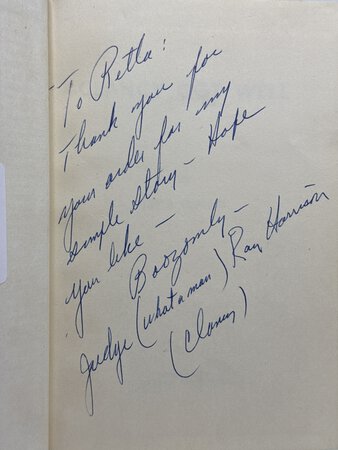 To Retla:
Thank you for
your order for my
simple story - Hope
you like -
Boozomly -
Judge (what a man) Ray Harrison
(Clancy)